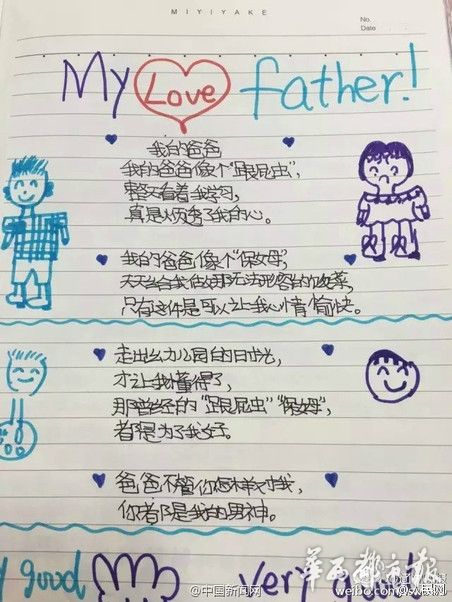 MIYIYAKE
No.
Date
My Love father!
我的爸爸
我的爸爸像个“跟屁虫”，
整天看着我学习，
真是烦透了我的心。
我的爸爸像个“保姆”，
天天给我做那无法形容的饭菜，
只有这件是可以让我心情愉快。
走出幼儿园的时光，
才让我懂得了，
那曾经的“跟屁虫”“保姆”，
都是为了我好。
爸爸不管你怎样对我，
你都是我的男神。
y good very
华西都市报
@中国新闻网